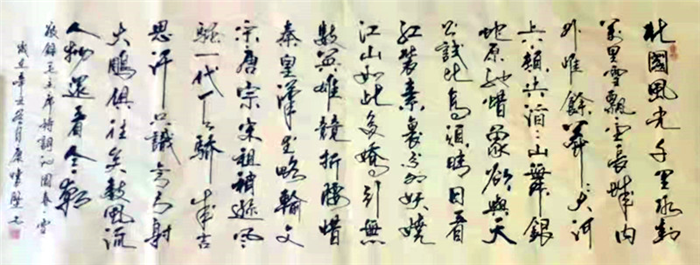 北國風光千里冰封
萬里雪飄望長城內
外惟餘莽莽大河
上下頓失滔滔山舞銀
蛇原馳蠟象欲與天
公試比高須晴日看
紅裝素裹分外妖嬈
江山如此多嬌引無
數英雄競折腰惜
秦皇漢武略輸文
采唐宗宋祖稍遜風
騷一代天驕成吉
思汗只識彎弓射
大鵰俱往矣數風流
人物還看今朝
敬錄毛主席詩詞沁園春雪